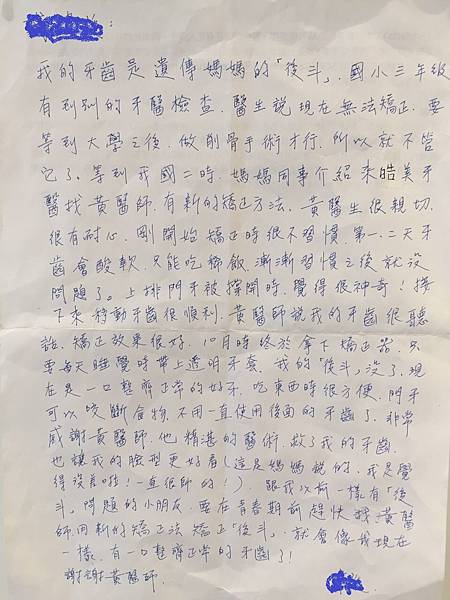 我的牙齒是遺傳媽媽的「後斗」. 國小三年級
有到別的牙醫檢查. 醫生說現在無法矯正. 要
等到大學之後. 做削骨手術才行. 所以就不管
它了. 等到我國二時. 媽媽同事介紹來皓美牙
醫找黃醫師. 有新的矯正方法. 黃醫生很親切.
很有耐心. 剛開始矯正時很不習慣. 第一.二天牙
齒會酸軟. 只能吃稀飯. 漸漸習慣之後就沒
問題了。上排門牙被撐開時. 覺得很神奇！接
下來移動牙齒很順利. 黃醫師說我的牙齒很聽
話. 矯正效果很好. 10月時終於拿下矯正器. 只
要每天睡覺時帶上透明牙套. 我的「後斗」沒了. 現
在是一口整齊正常的好牙. 吃東西時很方便. 門牙
可以咬斷食物. 不用一直使用後面的牙齒了. 非常
感謝黃醫師. 他精湛的醫術. 救了我的牙齒.
也讓我的臉型更好看(這是媽媽說的. 我是覺
得沒差啦！一直很帥的！). 跟我以前一樣有「後
斗」問題的小朋友. 要在青春期前趕快找黃醫
師用新的矯正法矯正「後斗」. 就會像我現在
一樣. 有一口整齊正常的牙齒了！
謝謝黃醫師.